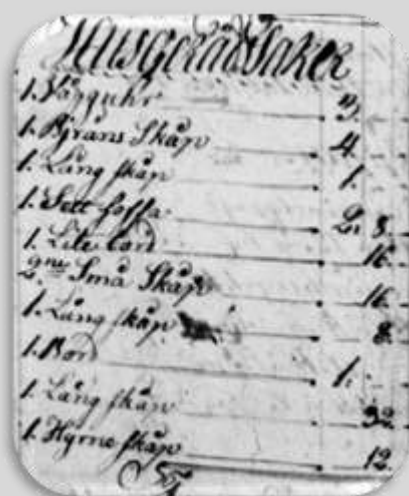 Husgerådsaker
1. Vägguhr 3.
1. Skåp 4.
1. Lång skåp 1.
1. Sett soffa 2. 8.
1. Lite bord 16.
2ne Små Skåp 16.
1. Lång skåp 8.
1. Bord 1.
1. Lång skåp 32.
1. Hyrne skåp 12.